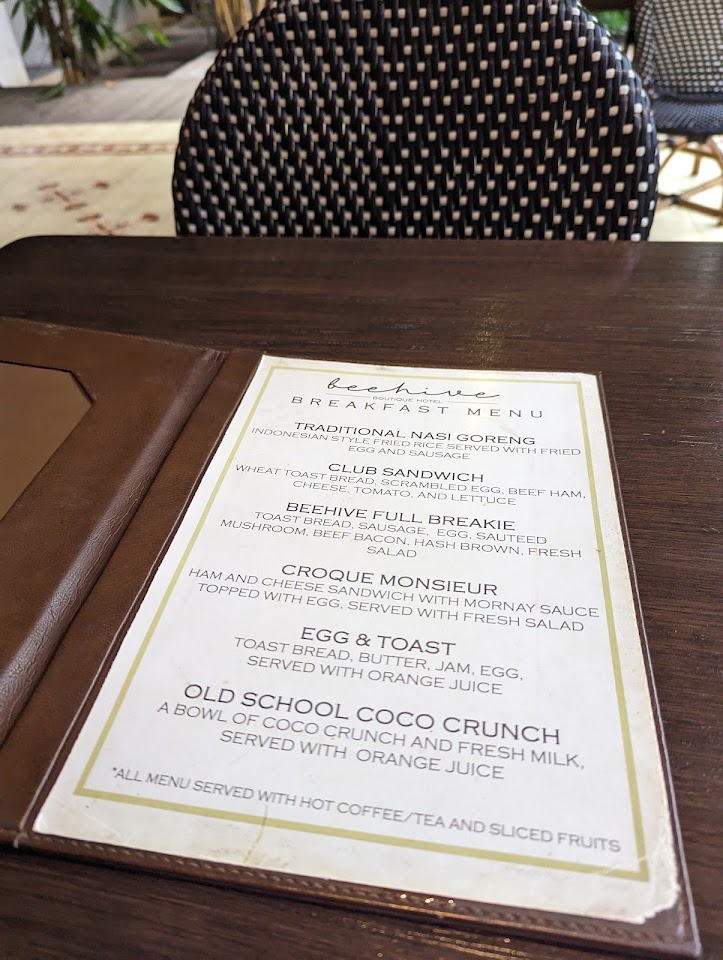 beehive
BOUTIQUE HOTEL
BREAKFAST MENU
TRADITIONAL NASI GORENG
INDONESIAN STYLE FRIED RICE SERVED WITH FRIED
EGG AND SAUSAGE
CLUB SANDWICH
WHEAT TOAST BREAD, SCRAMBLED EGG, BEEF HAM,
CHEESE, TOMATO, AND LETTUCE
BEEHIVE FULL BREAKIE
TOAST BREAD, SAUSAGE, EGG, SAUTEED
MUSHROOM, BEEF BACON, HASH BROWN, FRESH
SALAD
CROQUE MONSIEUR
HAM AND CHEESE SANDWICH WITH MORNAY SAUCE
TOPPED WITH EGG, SERVED WITH FRESH SALAD
EGG & TOAST
TOAST BREAD, BUTTER, JAM, EGG,
SERVED WITH ORANGE JUICE
OLD SCHOOL COCO CRUNCH
A BOWL OF COCO CRUNCH AND FRESH MILK,
SERVED WITH ORANGE JUICE
*ALL MENU SERVED WITH HOT COFFEE/TEA AND SLICED FRUITS